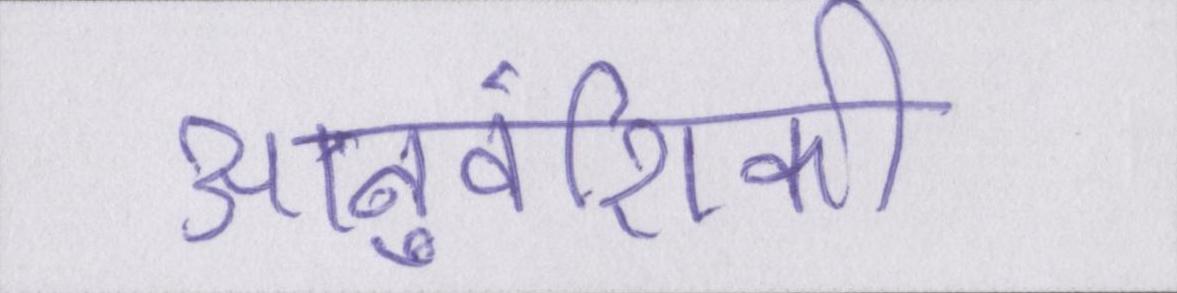 आनुवंशिकी